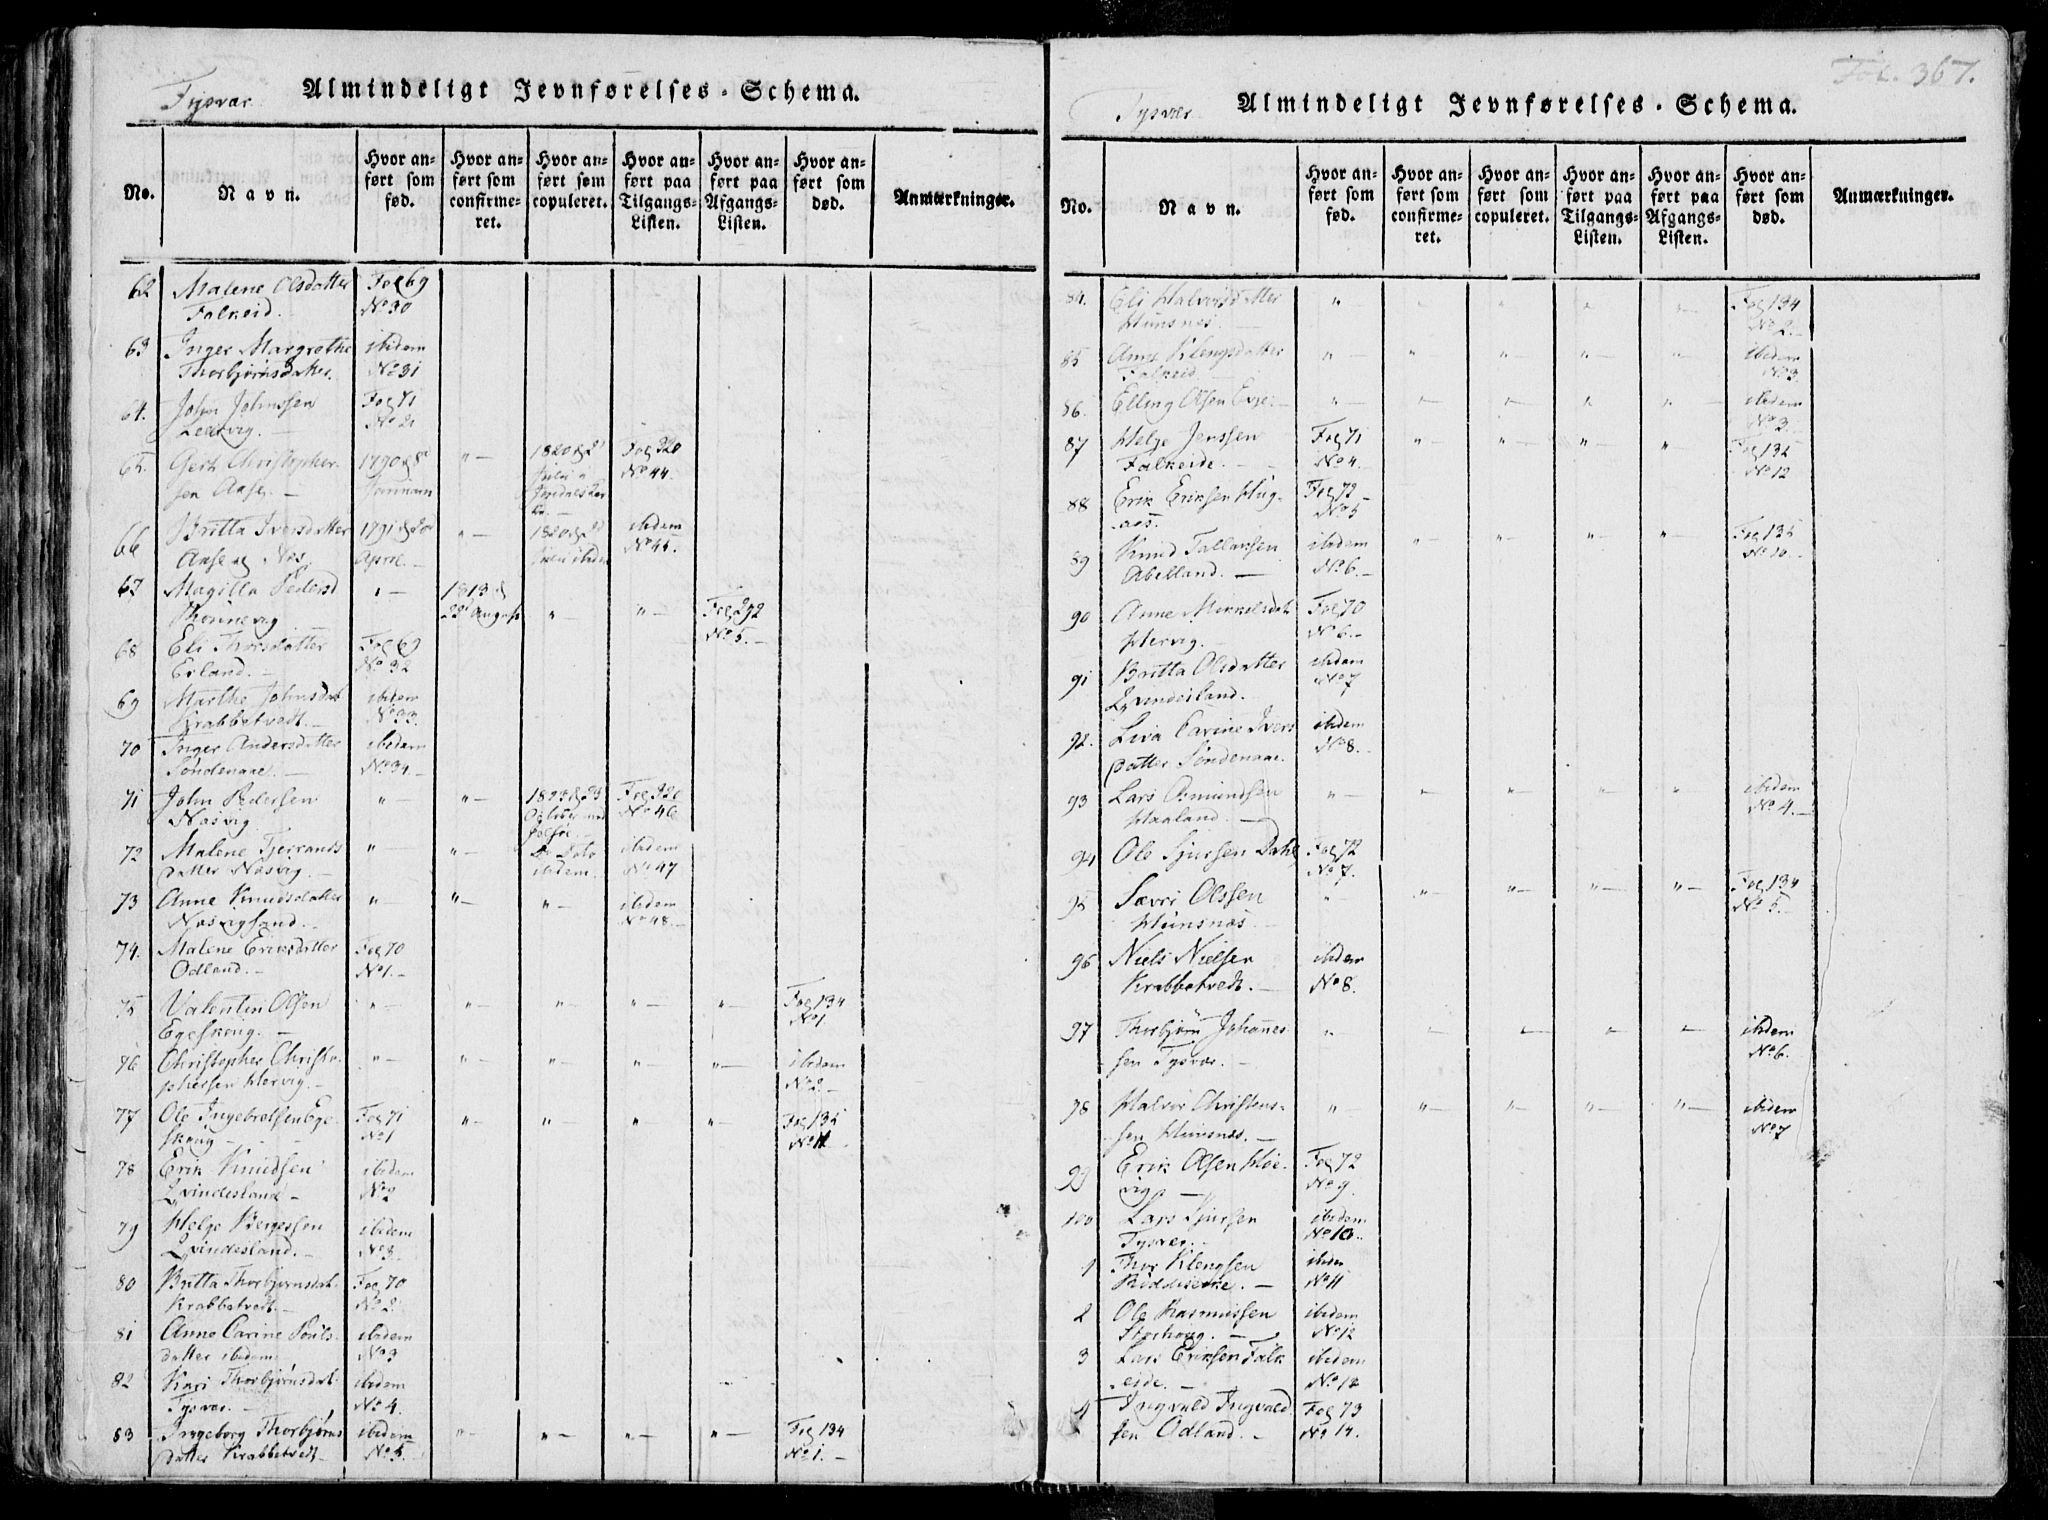 Tysvær
Almindeligt Jevnførelses-Schema.
No.
Navn.
Hvor anført som fød.
Hvor anført som confirmeret.
Hvor anført som copuleret.
Hvor anført paa Tilgangs-Listen.
Hvor anført paa Afgangs-Listen.
Hvor anført som død.
Anmærkninger.
62 Malene Olsdatter Fol 69
Falkeid. No 30
63 Inger Margrethe ibidem
Thorbjørnsdatter. No 31
64. John Johnssen Fol 71
Leervig. — No 21
65. Gert Christopher- 1790 d 8 " — 1820 d 2 Fol 320
sen Aase — No 44.
66 Britta Iversdatter 1791 d 20 " — 1820 d 2 ibidem
Aase og Næs. April — ibidem No 45.
67 Magilla Pedersd " — 1813 d
22 August " — " — Fol 292
No 5. —
68 Eli Thorsdatter Fol 69
Erland. — No 32
69 Marthe Johnsdat ibidem
Krabbetvedt. — No 33.
70 Inger Andersdatter ibidem
Søndenaae. — No 34. —
71 John Pedersen " — " — 1823 d 23 Fol 320
Næsvig No 46
72 Malene Tjerrands " — " — Do Dato ibidem
datter Næsvig. — ibidem. No 47
73 Anne Knudsdatter " — " — " — ibidem
Næsvigsand. — No 48. —
74. Malene Eriksdatter Fol 70
Odland. — No 1. —
75 Valentin Olsen " — " — " — " — " — Fol 134
Egeskoug. — No 1
76 Christopher Christo- " — " — " — " — " — ibidem
phersen Hervig. — No 2. —
77 Ole Ingebretsen Ege- Fol 71 " — " — " — " — Fol 135
skoug — No 1 No 11
78 Erik Knudsen ibidem
Qvindesland — No 2
79 Helge Bergessen ibidem
Qvindesland. — No 3.
80 Britta Thorbjørnsdat. Fol 70
Krabbetvedt. — No 2.
81 Anne Carine Pouls- ibidem
datter ibidem No 3
82 Kari Thorbjørnsdat. ibidem
Tysvær. — No 4.
83 Ingeborg Thorbjørns ibidem " — " — " — " — Fol 134
datter Krabbetvedt — No 5. No 1. —
Fol. 367.
Tysvær
Almindeligt Jevnførelses-Schema.
No.
Navn.
Hvor anført som fød.
Hvor anført som confirmeret.
Hvor anført som copuleret.
Hvor anført paa Tilgangs-Listen.
Hvor anført paa Afgangs-Listen.
Hvor anført som død.
Anmærkninger.
84. Eli Halvorsdatter " — " — " " — " — Fol 134
Huusnæs. — No 2. —
85 Anne Klengsdatter " — " — " " — " ibidem
Falkeid — No 3.
86. Elling Olsen — " — " — " " " — ibidem
No 3
87 Helge Jenssen Fol 71 " — " — " — " Fol 135
Falkeide. — No 4. — No 12
88 Erik Eriksen Fol 72
No 5
89 Knud Tallaksen ibidem " — " — " — " — Fol 135
Abelland. — No 6. — No 10. —
90 Anne Mikkelsdat. Fol 70
Hervig. — No 6. —
91 Britta Olsdatter ibidem
Qvindesland. No 7
92. Liva Carine Ivers ibidem
datter Søndenaae. No 8.
93 Lars Osmundsen " — " — " — " — " ibidem
Haaland. — No 4. —
94 Ole Sjursen Dahl Fol 72
No 7.
95 Sævri Olssen " " — " — " — " — Fol 134
Huusnæs — No 5. —
96 Niels Nielsen ibidem
Krabbetvedt. — No 8.
97 Thorbjørn Johannes- " — " — " — " — " — ibidem
sen Tysvær. — No 6.
98 Halvor Christens- " — " — " — " — " — ibidem
sen Huusnæs. — No 7
99 Erik Olsen Høie- Fol 72
vig — No 9.
100 Lars Sjursen ibidem
Tysvær. — No 10. —
1 Thor Klengsen ibidem
— No 11
2 Ole Rasmussen ibidem
Storhoug. — No 12
3 Lars Eriksen Falk ibidem
eide. — No 13
4 Ingvald Ingvald- Fol 73
sen Odland. — No 14.